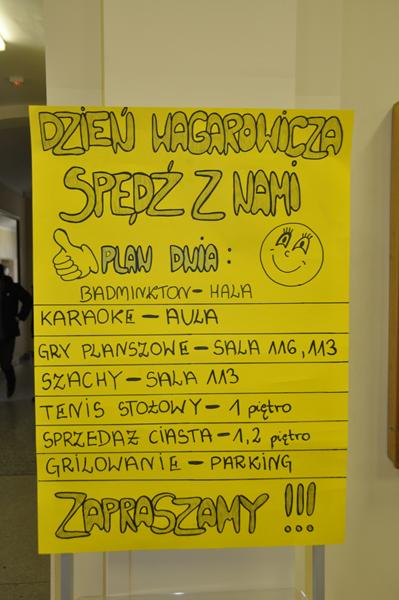 DZIEŃ WAGAROWICZA
SPĘDŹ Z NAMI
PLAN DNIA :
BADMINKTON - HALA
KARAOKE - AULA
GRY PLANSZOWE - SALA 116, 113
SZACHY - SALA 113
TENIS STOŁOWY - 1 piętro
SPRZEDAŻ CIASTA - 1,2 piętro
GRILOWANIE - PARKING
ZAPRASZAMY !!!